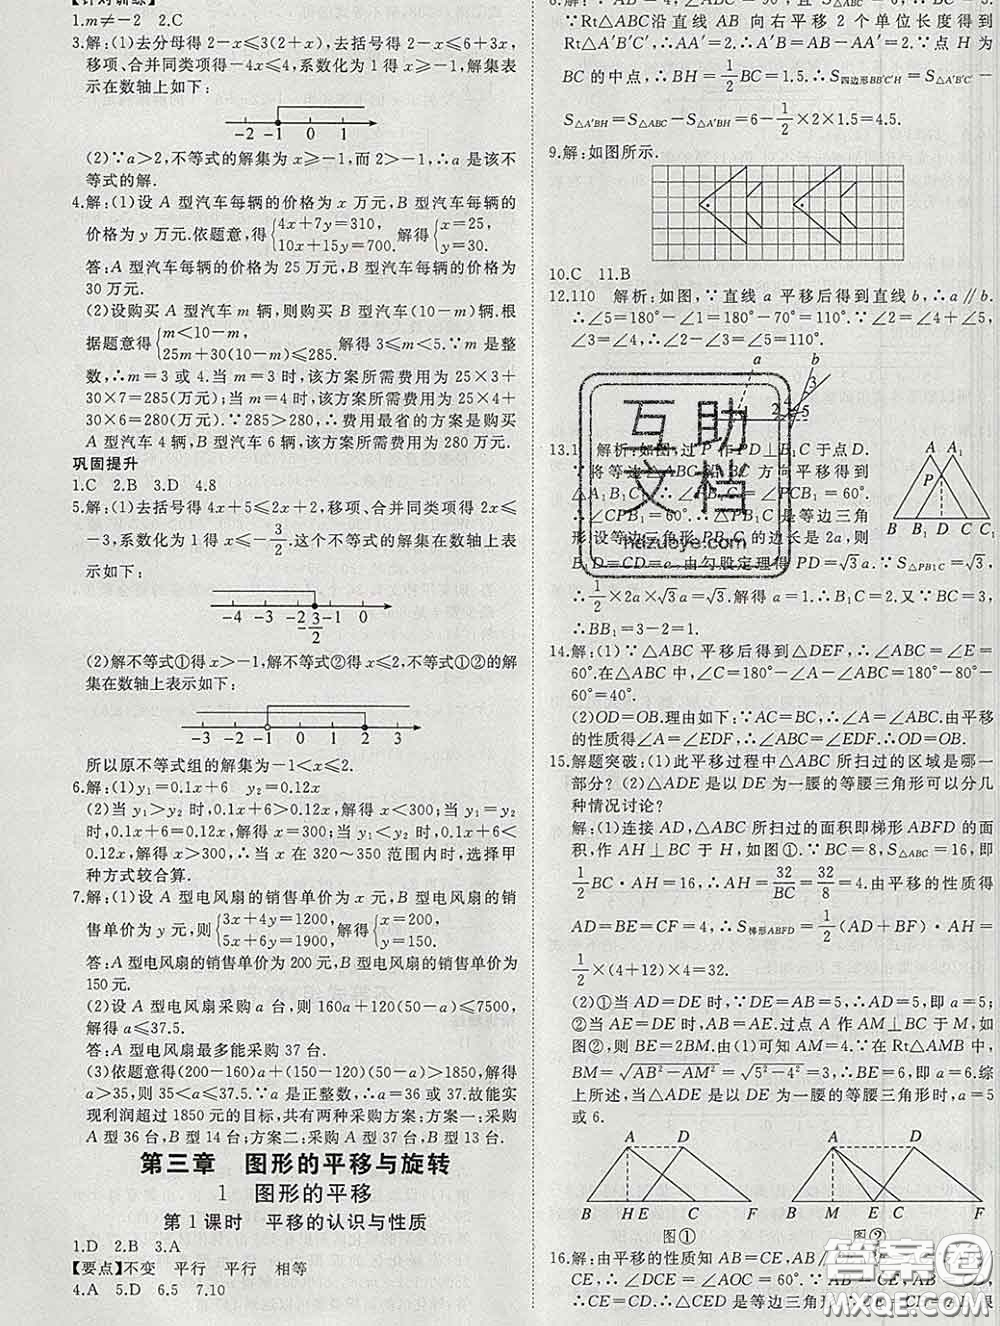 【针对训练】
1.m≠-2　2.C
3.解:(1)去分母得2-x≤3(2+x),去括号得2-x≤6+3x,
移项、合并同类项得-4x≤4,系数化为1得x≥-1,解集表
示在数轴上如下:
-2 -1 0 1
(2)∵a>2,不等式的解集为x≥-1,而2>-1,∴a是该不
等式的解.
4.解:(1)设A型汽车每辆的价格为x万元,B型汽车每辆的
价格为y万元.依题意,得{4x+7y=310, 10x+15y=700. 解得{x=25, y=30.
答:A型汽车每辆的价格为25万元,B型汽车每辆的价格为
30万元.
(2)设购买A型汽车m辆,则购买B型汽车(10-m)辆.根
据题意得{m<10-m, 25m+30(10-m)≤285. 解得3≤m<5.∵m是整
数,∴m=3或4.当m=3时,该方案所需费用为25×3+
30×7=285(万元);当m=4时,该方案所需费用为25×4+
30×6=280(万元).∵285>280,∴费用最省的方案是购买
A型汽车4辆,B型汽车6辆,该方案所需费用为280万元.
巩固提升
1.C　2.B　3.D　4.8
5.解:(1)去括号得4x+5≤2x+2,移项、合并同类项得2x≤
-3,系数化为1得x≤-3/2.这个不等式的解集在数轴上表
示如下:
-4 -3 -2 -3/2 -1 0
(2)解不等式①得x>-1,解不等式②得x≤2,不等式①②的解
集在数轴上表示如下:
-3 -2 -1 0 1 2 3
所以原不等式组的解集为-1<x≤2.
6.解:(1)y₁=0.1x+6　y₂=0.12x
(2)当y₁>y₂时,0.1x+6>0.12x,解得x<300;当y₁=y₂
时,0.1x+6=0.12x,解得x=300;当y₁<y₂时,0.1x+6<
0.12x,解得x>300,∴当x在320~350范围内时,选择甲
种方式较合算.
7.解:(1)设A型电风扇的销售单价为x元,B型电风扇的销
售单价为y元,则{3x+4y=1200, 5x+6y=1900, 解得{x=200, y=150.
答:A型电风扇的销售单价为200元,B型电风扇的销售单价为
150元.
(2)设A型电风扇采购a台,则160a+120(50-a)≤7500,
解得a≤37.5.
答:A型电风扇最多能采购37台.
(3)依题意得(200-160)a+(150-120)(50-a)>1850,解得
a>35,则35<a≤37.5.∵a是正整数,∴a=36或37.故能实
现利润超过1850元的目标,共有两种采购方案:方案一:采购
A型36台,B型14台;方案二:采购A型37台,B型13台.
第三章　图形的平移与旋转
1　图形的平移
第1课时　平移的认识与性质
1.D　2.B　3.A
【要点】不变　平行　平行　相等
4.A　5.D　6.5　7.10
∵Rt△ABC沿直线AB向右平移2个单位长度得到
Rt△A'B'C',∴AA'=2.∴A'B=AB-AA'=2.∵点H为
BC的中点,∴BH=1/2BC=1.5.∴S四边形BB'C'H=S△A'B'C'-
S△A'BH=S△ABC-S△A'BH=6-1/2×2×1.5=4.5.
9.解:如图所示.
10.C　11.B
12.110　解析:如图,∵直线a平移后得到直线b,∴a∥b.
∴∠5=180°-∠1=180°-70°=110°.∵∠2=∠4+∠5,
∠3=∠4,∴∠2-∠3=∠5=110°.
a b 3 2 4 5
互助
文档
hdzuoye.com
13.1　解析:如图,过P作PD⊥B₁C于点D.
∵将等边△ABC沿BC方向平移得到
△A₁B₁C₁,∴∠PB₁C=∠PCB₁=60°.
∴∠CPB₁=60°.∴△PB₁C是等边三角
形.设等边三角形PB₁C的边长是2a,则
B₁D=CD=a.由勾股定理得PD=√3a.∵S△PB₁C=√3,
∴1/2×2a×√3a=√3.解得a=1.∴B₁C=2.又∵BC=3,
∴BB₁=3-2=1.
A A₁ P B B₁ D C C₁
14.解:(1)∵△ABC平移后得到△DEF,∴∠ABC=∠E=
60°.在△ABC中,∠C=180°-∠A-∠ABC=180°-80°-
60°=40°.
(2)OD=OB.理由如下:∵AC=BC,∴∠A=∠ABC.由平移
的性质得∠A=∠EDF,∴∠ABC=∠EDF,∴OD=OB.
15.解题突破:(1)此平移过程中△ABC所扫过的区域是哪一
部分?(2)△ADE是以DE为一腰的等腰三角形可以分几
种情况讨论?
解:(1)连接AD,△ABC所扫过的面积即梯形ABFD的
面积,作AH⊥BC于H,如图①.∵BC=8,S△ABC=16,即
1/2BC·AH=16,∴AH=32/BC=32/8=4.由平移的性质得
AD=BE=CF=4,∴S梯形ABFD=1/2(AD+BF)·AH=
1/2×(4+12)×4=32.
(2)①当AD=DE时,∵DE=AB=5,∴AD=5,即a=5;
②当AE=DE时,AB=AE=5.过点A作AM⊥BE于M,如
图②,则BE=2BM.由(1)可知AM=4.∵在Rt△AMB中,
BM=√(AB²-AM²)=√(5²-4²)=3,∴BE=6,即a=6.综
上所述,当△ADE是以DE为一腰的等腰三角形时,a=5
或6.
A D B H E C F
图①
A D B M E C F
图②
16.解:由平移的性质知AB=CE,AB∥
答案圈
∠CED=∠AOC=60°.∵AB=CD,AB=CE,
∴CE=CD.∴△CED是等边三角形,
MXQE.COM